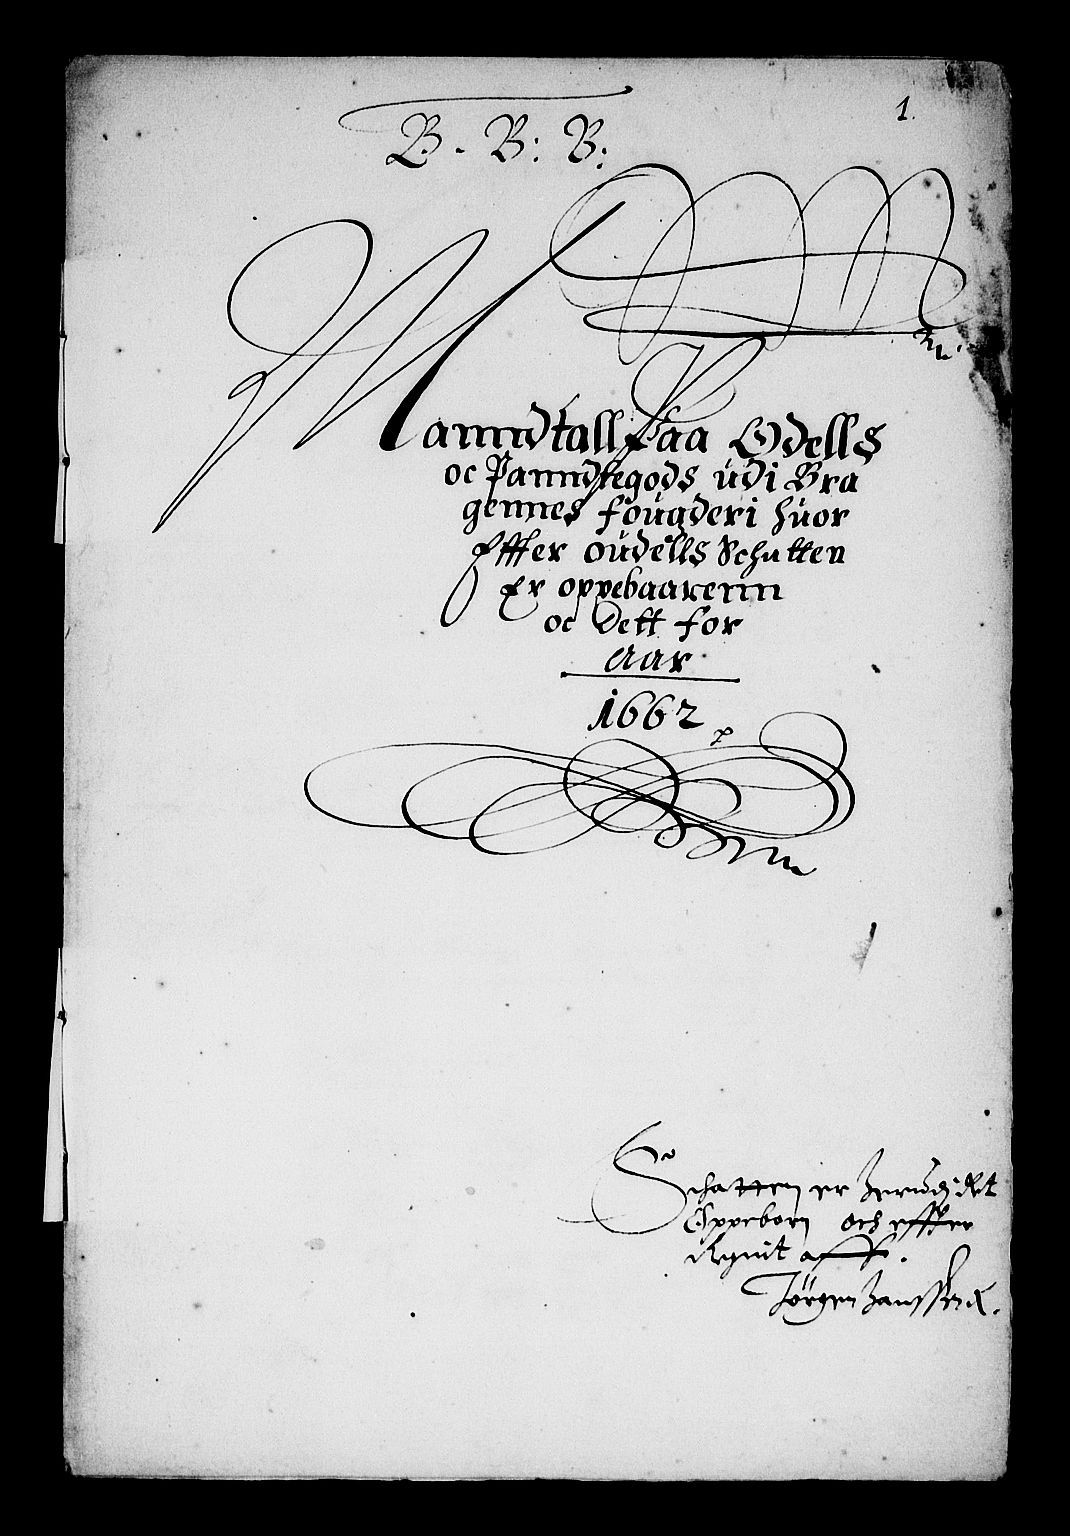 1.
B. B: B:
Manndtall Paa Odells
oc Panndtegods udi Bra
gennes fougderi huor
Effter oudells Schatten
Er oppebaarenn
oc Dett for
Aar
1662
Schatten er
Oppeborn och effter
Jörgen Janssen